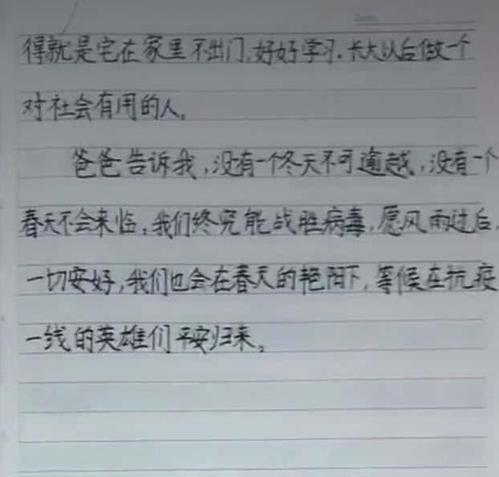 得就是宅在家里不出门,好好学习.长大以后做一个
对社会有用的人。
爸爸告诉我,没有一个冬天不可逾越,没有一个
春天不会来临,我们终究能战胜病毒,愿风雨过后,
一切安好,我们也会在春天的艳阳下,等候在抗疫
一线的英雄们平安归来。